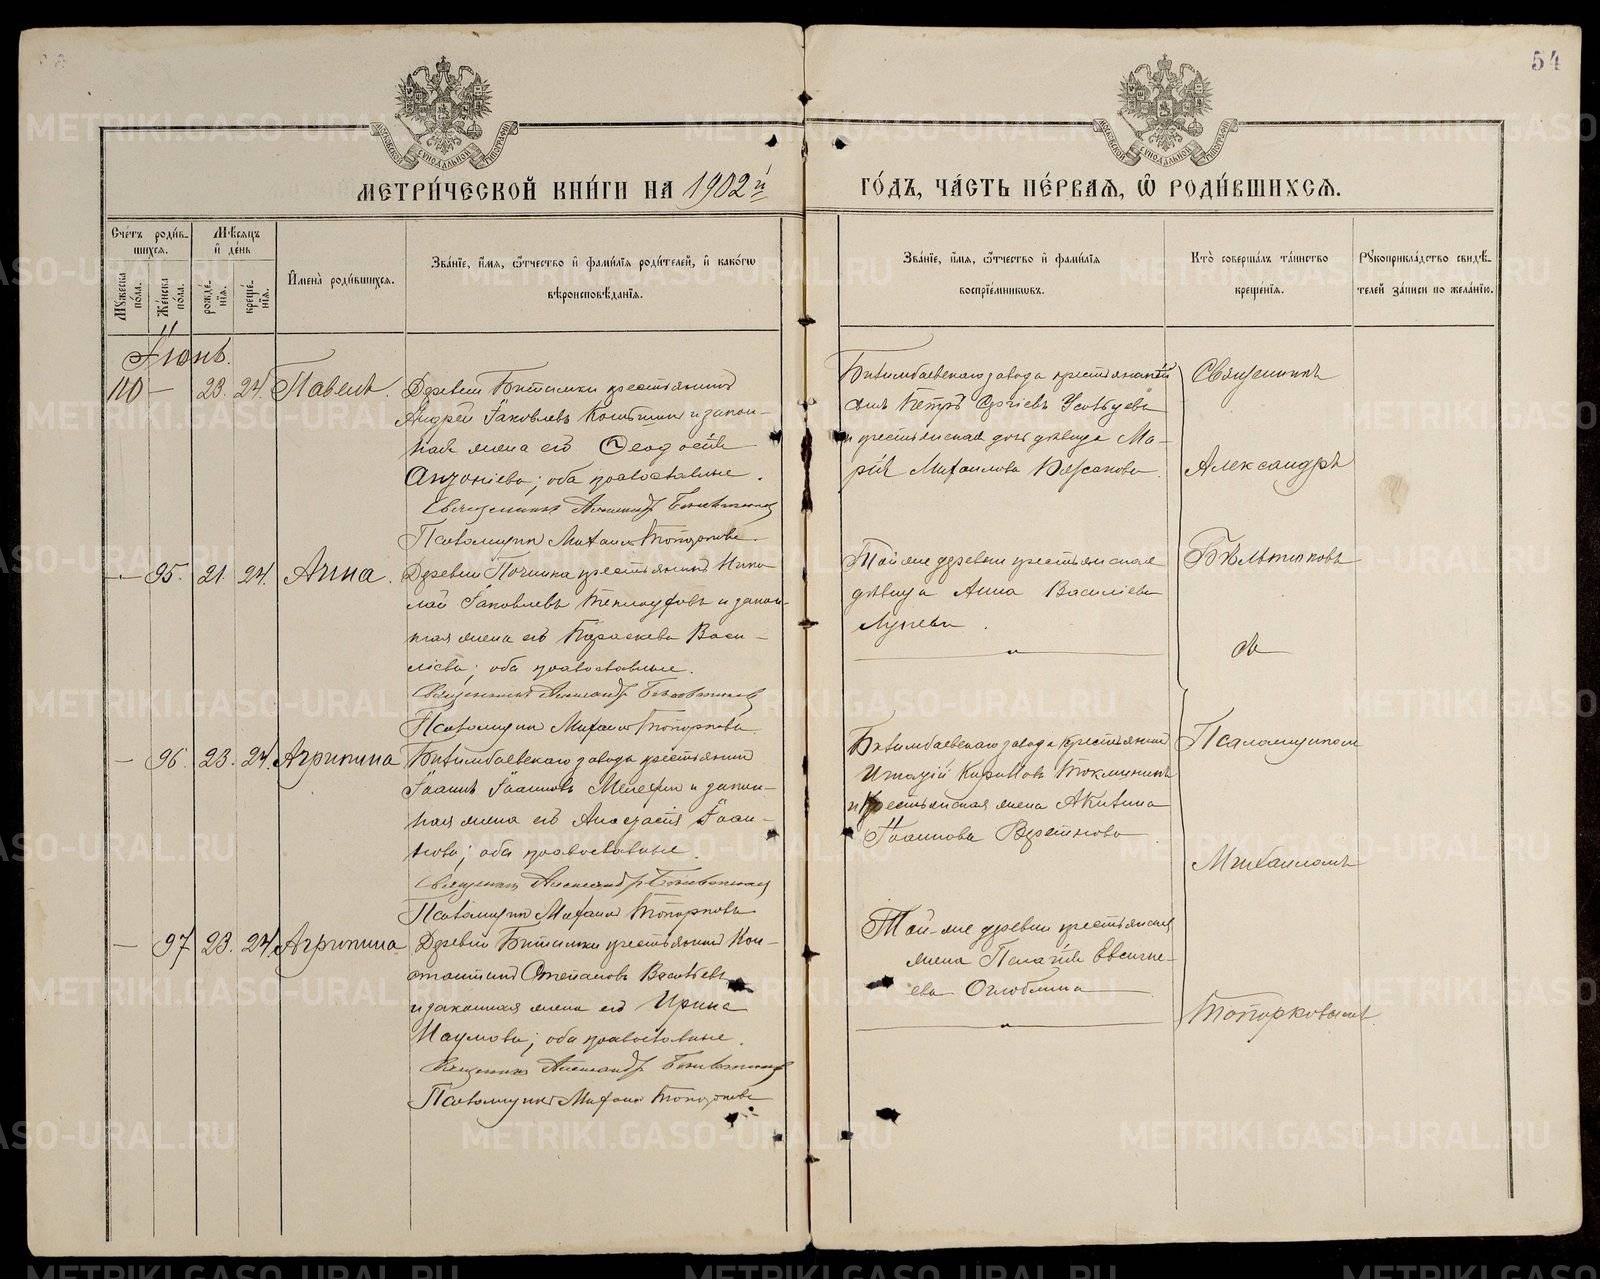 54
МОСКОВСКОЙ СУНОДАЛЬНОЙ ТИПОГРАФІИ
МОСКОВСКОЙ СУНОДАЛЬНОЙ ТИПОГРАФІИ
МЕТРИ́ЧЕСКОЙ КНИ́ГИ НА 1902 й
ГО́ДЪ, ЧА́СТЬ ПЕ́РВАЯ, Ѡ РОДИ́ВШИХСЯ.
Сче́тъ роди́в-
шихся.
Мѣсяцъ
и де́нь
Мꙋ́жеска
по́ла.
Же́нска
по́ла.
рожде́-
нїя.
креще́-
нїя.
Имена̀ роди́вшихся.
Зва́нїе, и́мя, ѻ́тчество и фами́лїя роди́телей, и како́гѡ
вѣроисповѣ́данїя.
Зва́нїе, и́мя, ѻ́тчество и фами́лїя
воспрїе́мникѡвъ.
Кто̀ соверша́лъ та́инство
креще́нїя.
Рꙋкоприкла́дство свидѣ́-
телей за́писи по жела́нїю.
Іюнь.
110 — 23. 24. Павелъ.
Деревни Битимки крестьянинъ
Андрей Іаковлевъ и закон-
ная жена его Ѳеодосія
Антоніева; оба православные.
Священникъ Александръ
Псаломщикъ Михаилъ Топорковъ.
Билимбаевскаго завода крестьянскій
сынъ Петръ Сергіевъ
и крестьянская дочь дѣвица Ма-
рія Михаилова
Священникъ
Александръ
— 95. 21. 24. Анна.
Деревни Починка крестьянинъ Нико-
лай Іаковлевъ и закон-
ная жена его Параскева Васи-
ліева; оба православные.
Священникъ Александръ
Псаломщикъ Михаилъ Топорковъ
Той же деревни крестьянская
дѣвица Анна Василіева
съ
— 96. 23. 24. Агрипина
Билимбаевскаго завода крестьянинъ
Іоаннъ Іоанновъ и закон-
ная жена его Анастасія Іоан-
нова; оба православные.
Священникъ Александръ
Псаломщикъ Михаилъ Топорковъ
Билимбаевскаго завода крестьянинъ
Игнатій Кириловъ
и крестьянская жена Акилина
Іоаннова
Псаломщикомъ
Михаиломъ
— 97 23. 24. Агрипина
Деревни Битимки крестьянинъ Кон-
стантинъ Степановъ
и законная жена его Ирина
Наумова; оба православные.
Священникъ Александръ
Псаломщикъ Михаилъ Топорковъ
Той-же деревни крестьянская
жена Пелагія Евсигне-
ева Оглоблина
Топорковымъ.
METRIKI.GASO-URAL.RU